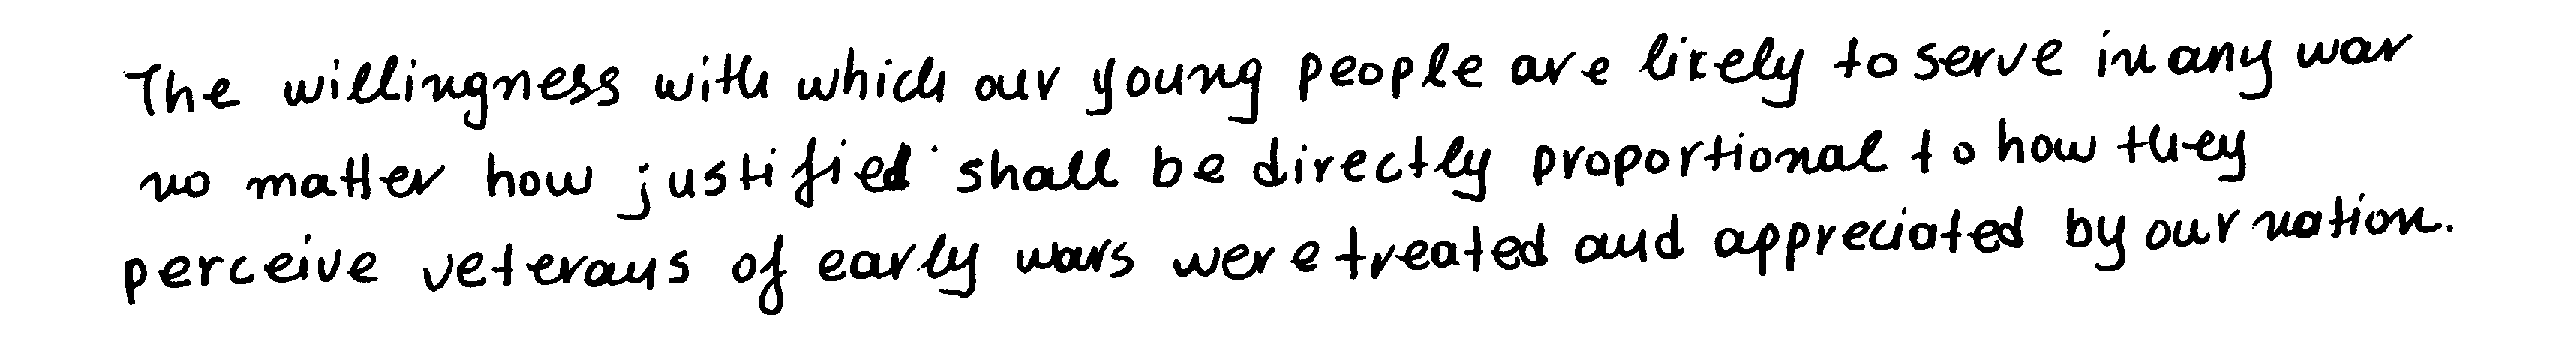 The willingness with which our young people are likely to serve in any war
no matter how justified shall be directly proportional to how they
perceive veterans of early wars were treated and appreciated by our nation.